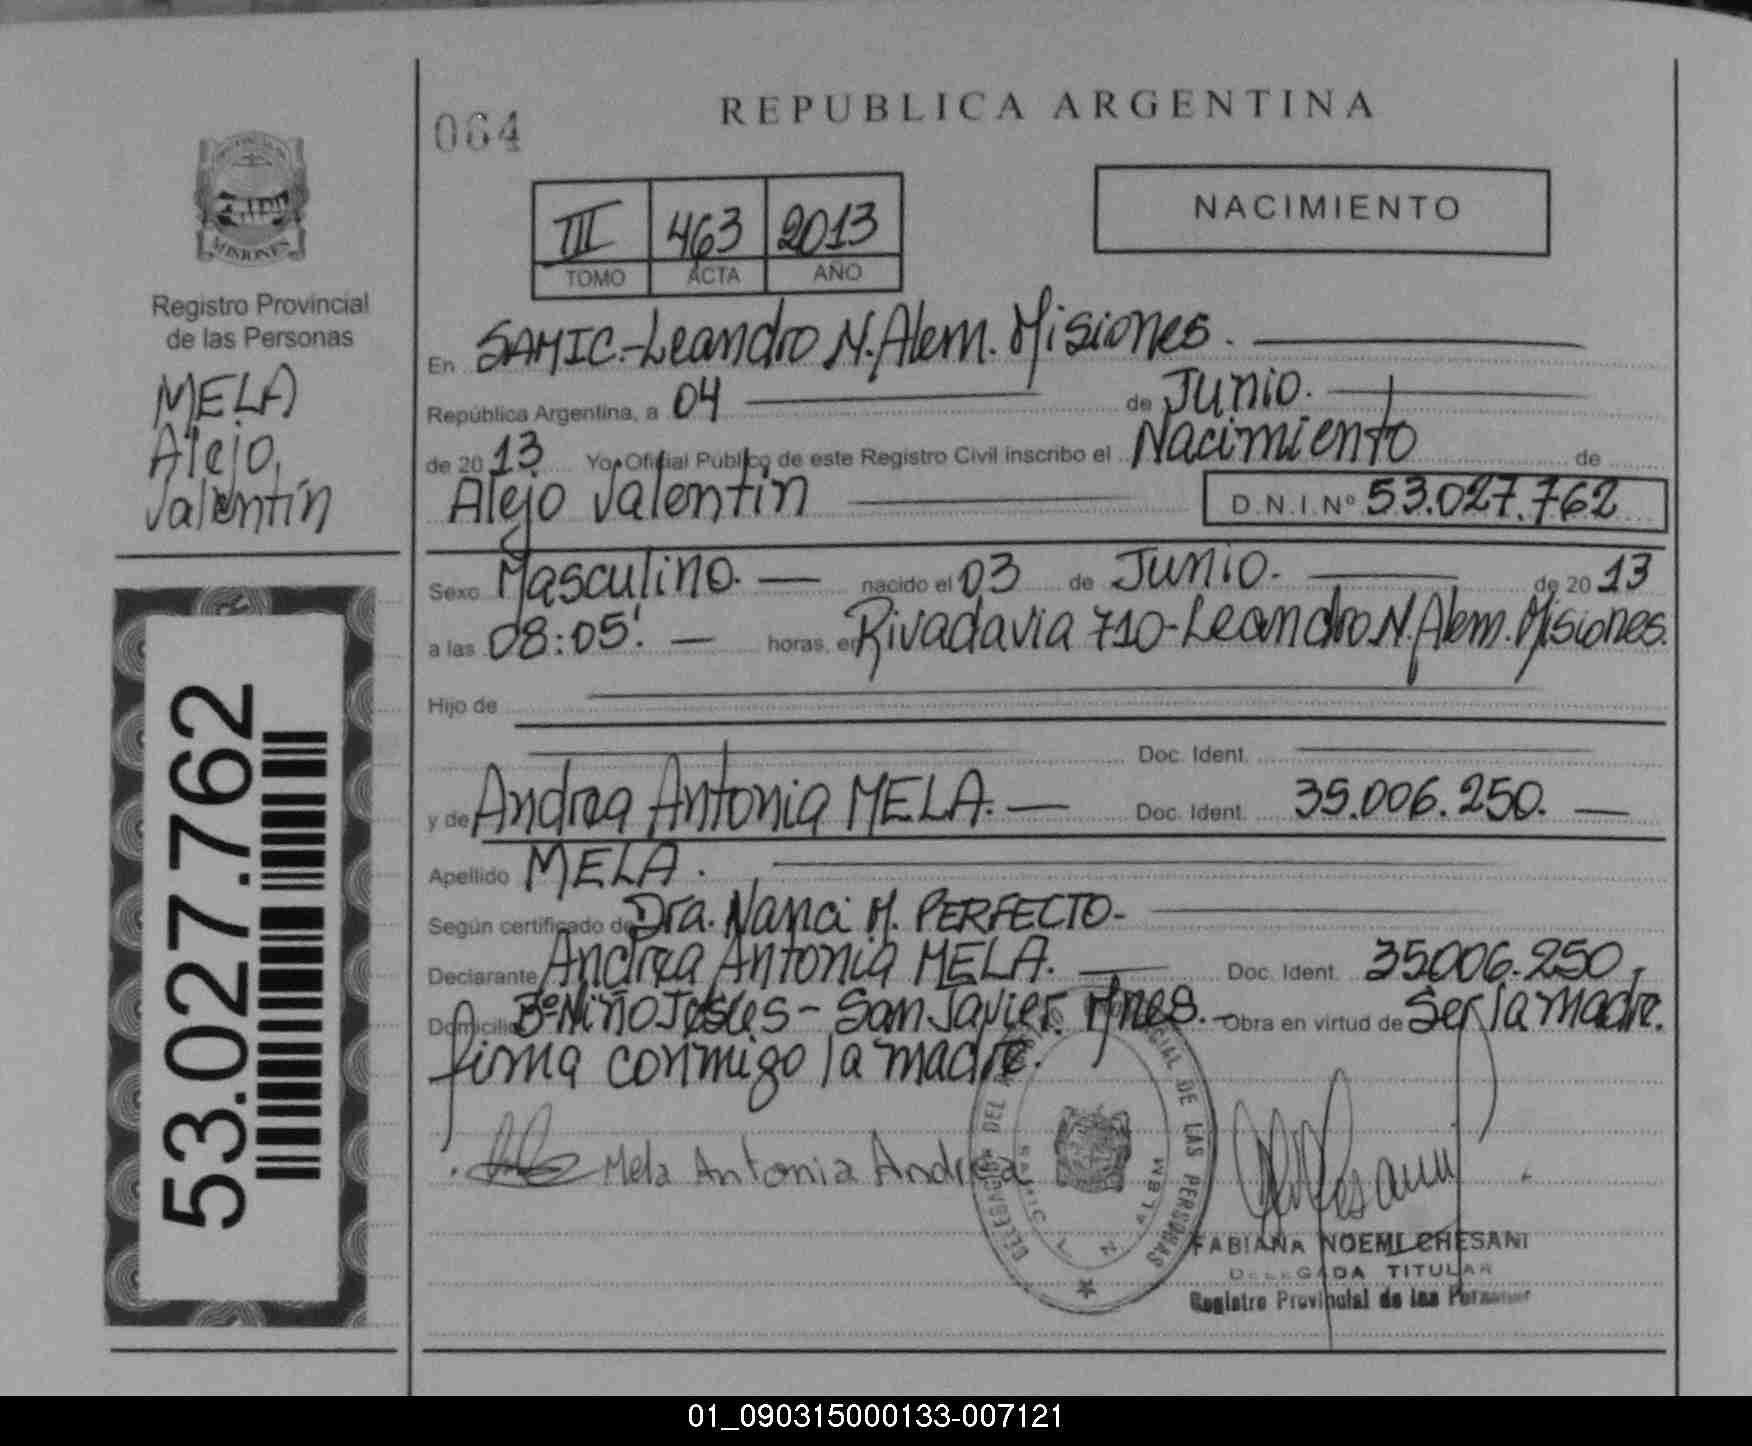 064
REPUBLICA ARGENTINA
NACIMIENTO
III 463 2013
TOMO ACTA AÑO
MISIONES
Registro Provincial
de las Personas
MELA
Alejo,
Valentín
53.027.762
En SAMIC.-Leandro N. Alem. Misiones.
República Argentina, a 04 de Junio.
de 2013 Yo, Oficial Público de este Registro Civil inscribo el Nacimiento de
Alejo Valentín D.N.I.Nº 53.027.762
Sexo Masculino. nacido el 03 de Junio. de 2013
a las 08:05'. horas, en Rivadavia 710-Leandro N. Alem. Misiones.
Hijo de
Doc. Ident.
y de Andrea Antonia MELA. Doc. Ident. 35.006.250.
Apellido MELA.
Según certificado de Dra. Nanci M. PERFECTO-
Declarante Andrea Antonia MELA. Doc. Ident. 35006.250,
Domicilio Bº Niño Jesús - San Javier. Mnes. - Obra en virtud de Ser la madre.
firma conmigo la madre.
Mela Antonia Andrea
DELEGADA DEL REGISTRO PROVINCIAL DE LAS PERSONAS
SAMIC L N ALEM
FABIANA NOEMI CHESANI
DELEGADA TITULAR
Registro Provincial de las Personas
01_090315000133-007121